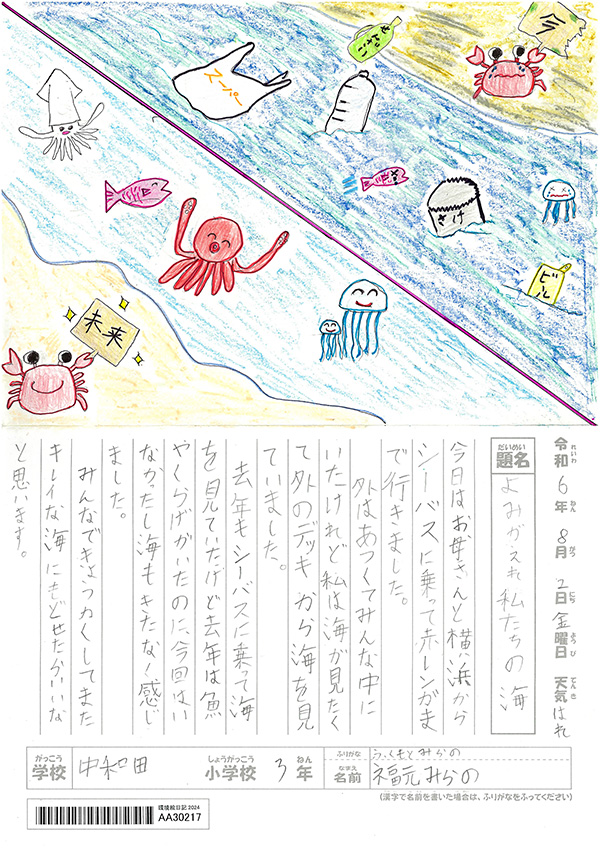 スーパー
ペットボトル
今
さけ
ビール
未来
令和6年8月2日金曜日 天気はれ
れいわ ねん がつ にち ようび てんき
だいめい
題名
よみがえれ私たちの海
今日はお母さんと横浜から
シーバスに乗って赤レンガま
で行きました。
外はあつくてみんな中に
いたけれど私は海が見たく
て外のデッキから海を見
ていました。
去年もシーバスに乗って海
を見ていたけど去年は魚
やくらげがいたのに、今回はい
なかったし海もきたなく感じ
ました。
みんなできょう力してまた
キレイな海にもどせたらいいな
と思います。
がっこう
学校
中和田
しょうがっこう
小学校
3
ねん
年
ふりがな
ふくもとみらの
なまえ
名前
福元みらの
(漢字で名前を書いた場合は、ふりがなをふってください)
環境絵日記2024
AA30217